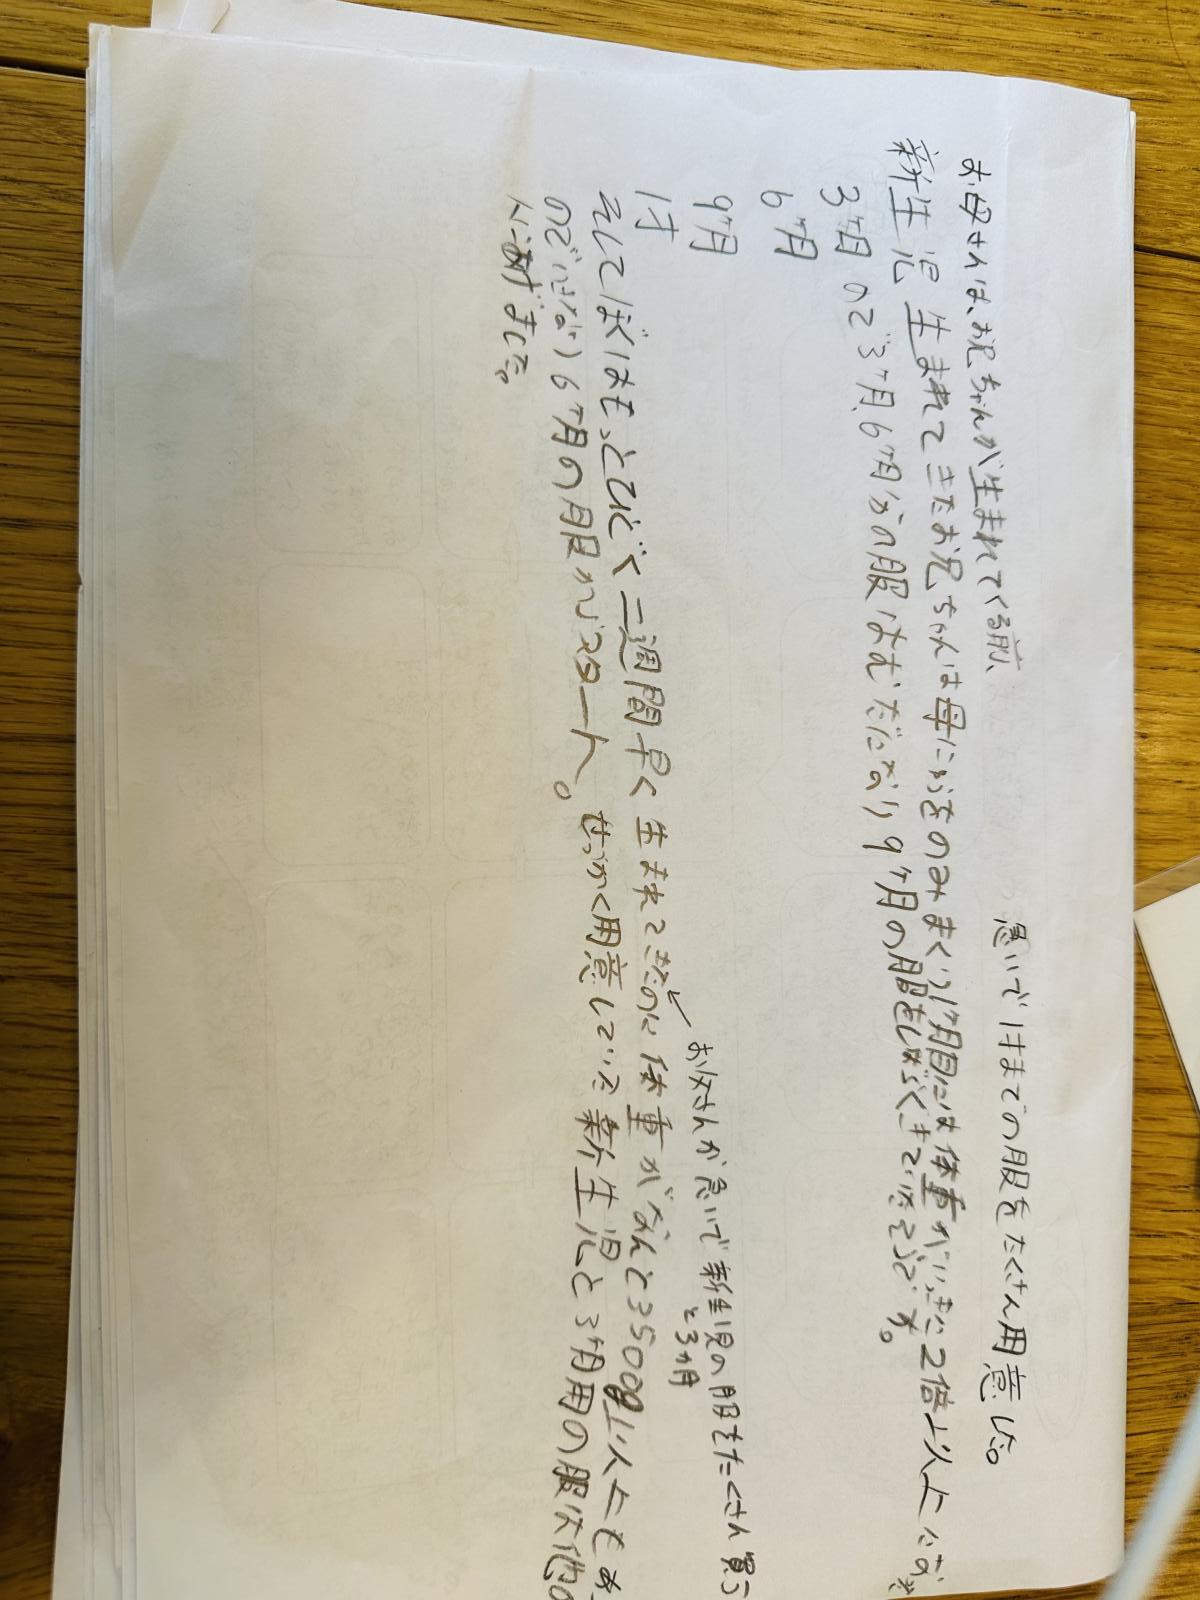 お母さんは、お兄ちゃんが生まれてくる前、
急いで1才までの服をたくさん用意した。
新生児 生まれてきたお兄ちゃんは母にゅうをのみまくり1ヶ月目には体重がいっきに2倍以上になった
3ヶ月 ので3ヶ月、6ヶ月分の服はむだになり9ヶ月の服をしばらくきていたそうです。
6ヶ月
9ヶ月
1才
お父さんが急いで新生児の服をたくさん買う
と3ヶ月
そしてぼくはもっとひどく二週間早く生まれてきたのに体重がなんと3500g以上もあ
のでいきなり6ヶ月の服がスタート。せっかく用意していた新生児と3ヶ月用の服は他の
人にあげました。